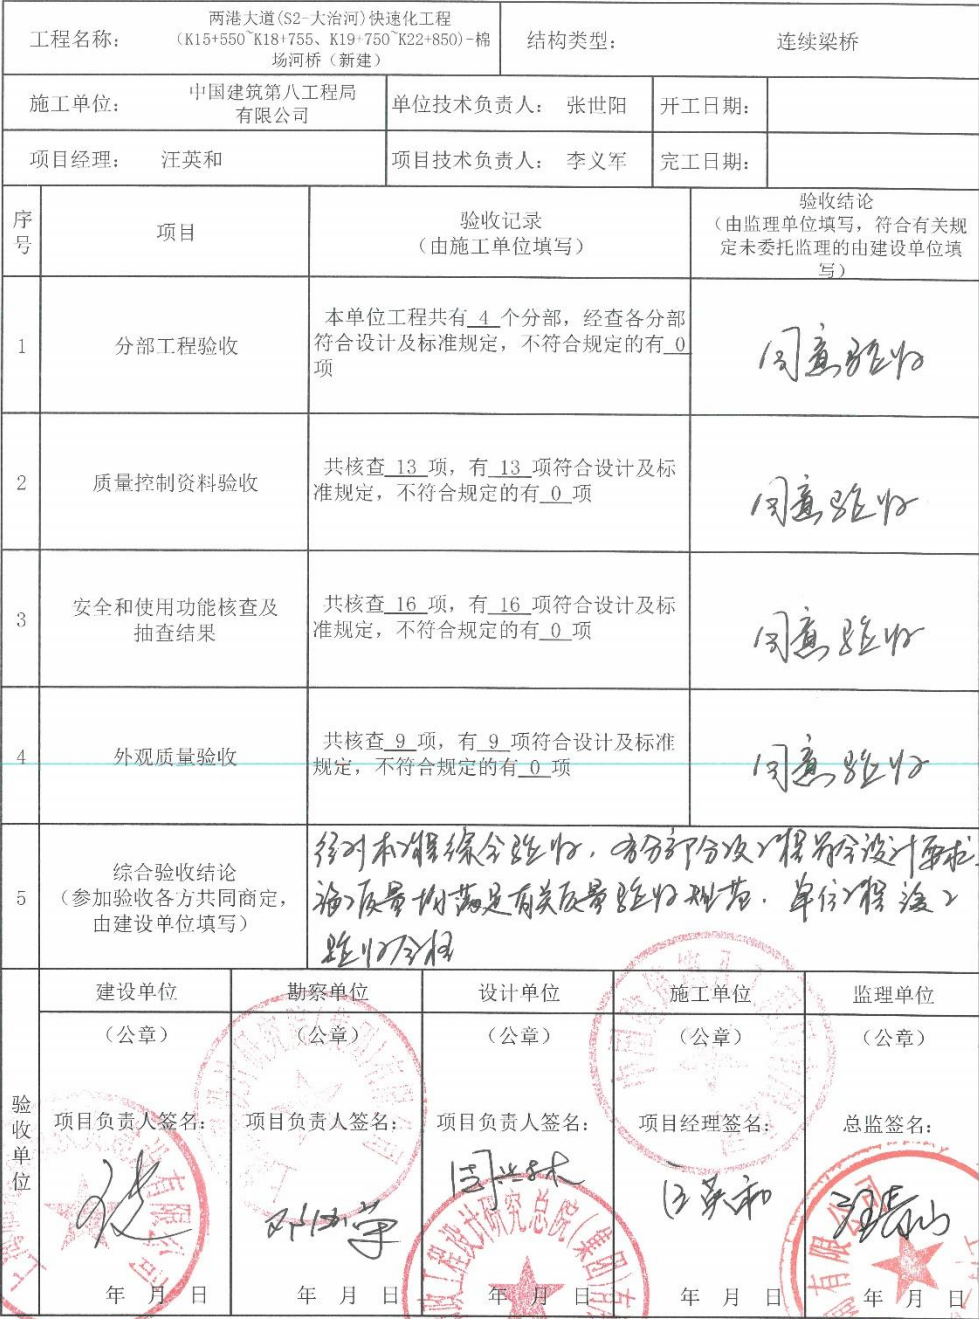 工程名称：
两港大道(S2-大治河)快速化工程
(K15+550~K18+755、K19+750~K22+850)-棉
场河桥（新建）
结构类型：
连续梁桥
施工单位：
中国建筑第八工程局
有限公司
单位技术负责人：
张世阳
开工日期：
项目经理：
汪英和
项目技术负责人：
李义军
完工日期：
序
号
项目
验收记录
（由施工单位填写）
验收结论
（由监理单位填写，符合有关规
定未委托监理的由建设单位填
写）
1
分部工程验收
本单位工程共有 4 个分部，经查各分部
符合设计及标准规定，不符合规定的有 0
项
同意验收
2
质量控制资料验收
共核查 13 项，有 13 项符合设计及标
准规定，不符合规定的有 0 项
同意验收
3
安全和使用功能核查及
抽查结果
共核查 16 项，有 16 项符合设计及标
准规定，不符合规定的有 0 项
同意验收
4
外观质量验收
共核查 9 项，有 9 项符合设计及标准
规定，不符合规定的有 0 项
同意验收
5
综合验收结论
（参加验收各方共同商定，
由建设单位填写）
经对本工程综合验收，各分部分项工程符合设计要求，
施工质量均满足有关质量验收规范，单位工程竣工
验收合格
验
收
单
位
建设单位
（公章）
项目负责人签名：
年 月 日
勘察单位
（公章）
项目负责人签名：
年 月 日
设计单位
（公章）
项目负责人签名：
工程设计研究总院（集团）有
年 月 日
施工单位
（公章）
项目经理签名：
汪英和
年 月 日
监理单位
（公章）
总监签名：
有限公司
年 月 日